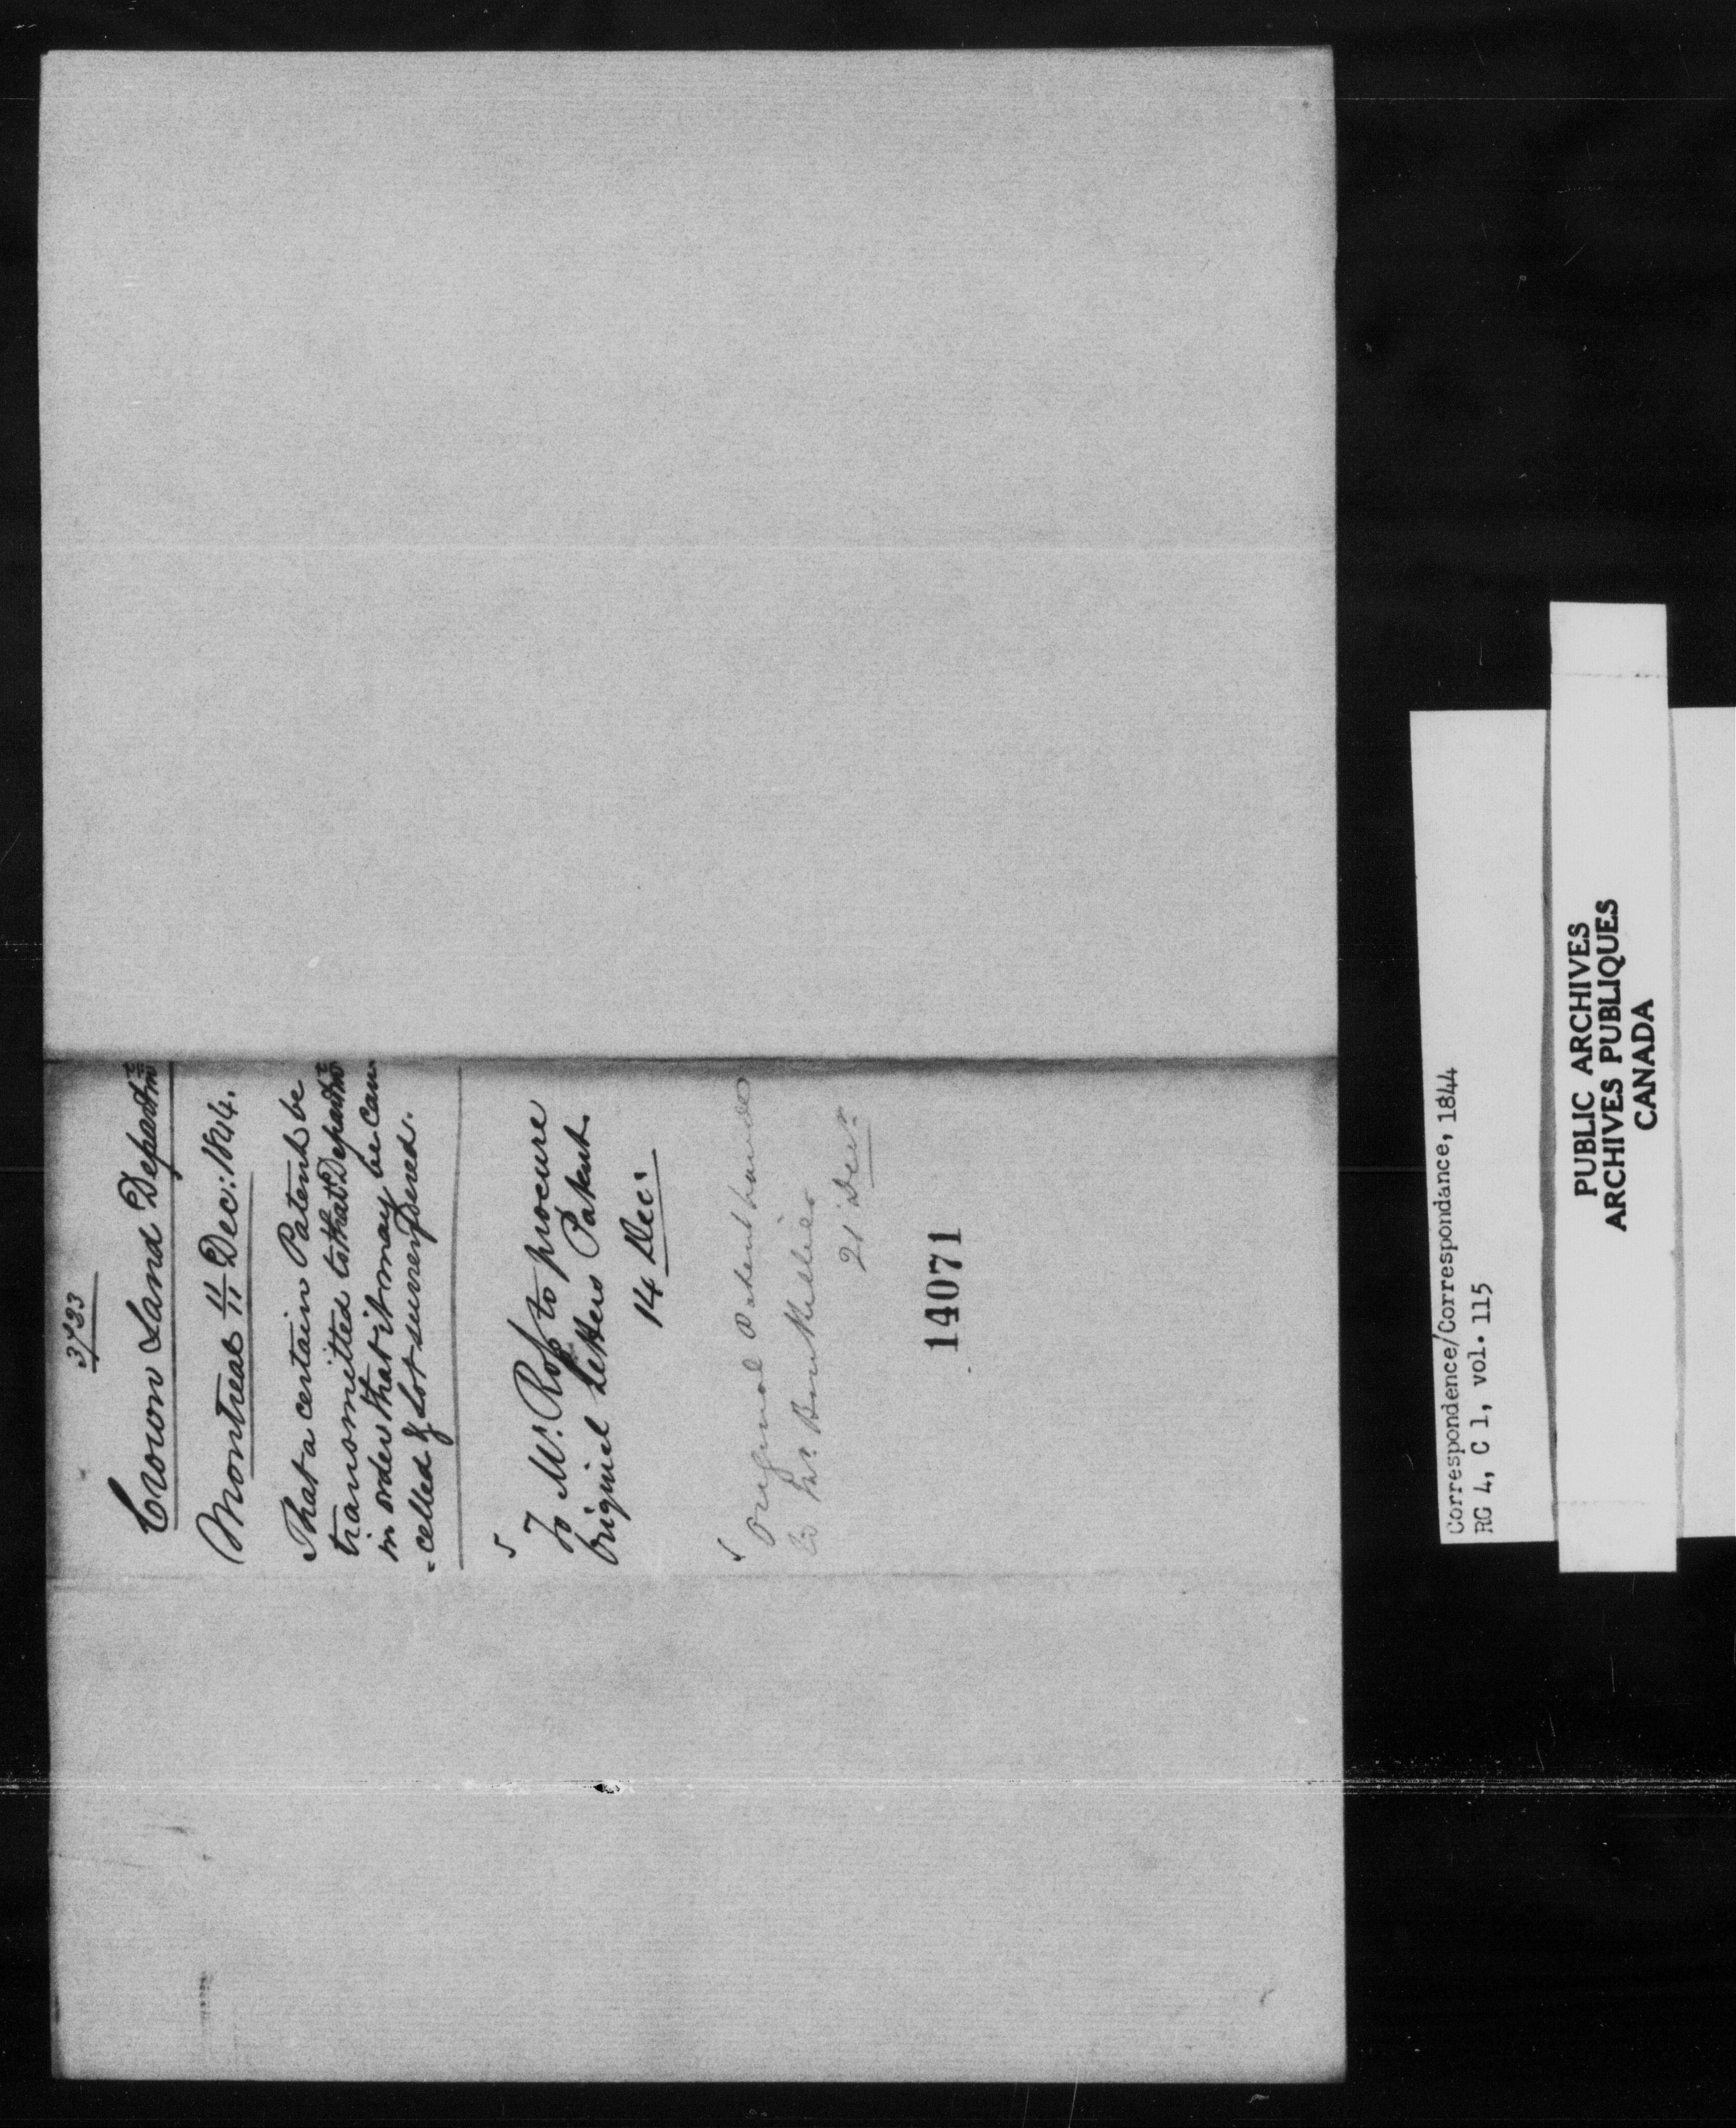 3733
Crown Land Departmt
Montreal 11 Dec: 1844.
That a certain Patent be
transmitted to that Departmt
in order that it may be can
-celled & Lot surrendered.
To Mr. Ross to procure
original Letters Patent.
14 Dec:
Original Patent handed
to Mr.
21 Decr.
14071
Correspondence/Correspondance, 1844
RG 4, C 1, vol. 115
PUBLIC ARCHIVES
ARCHIVES PUBLIQUES
CANADA